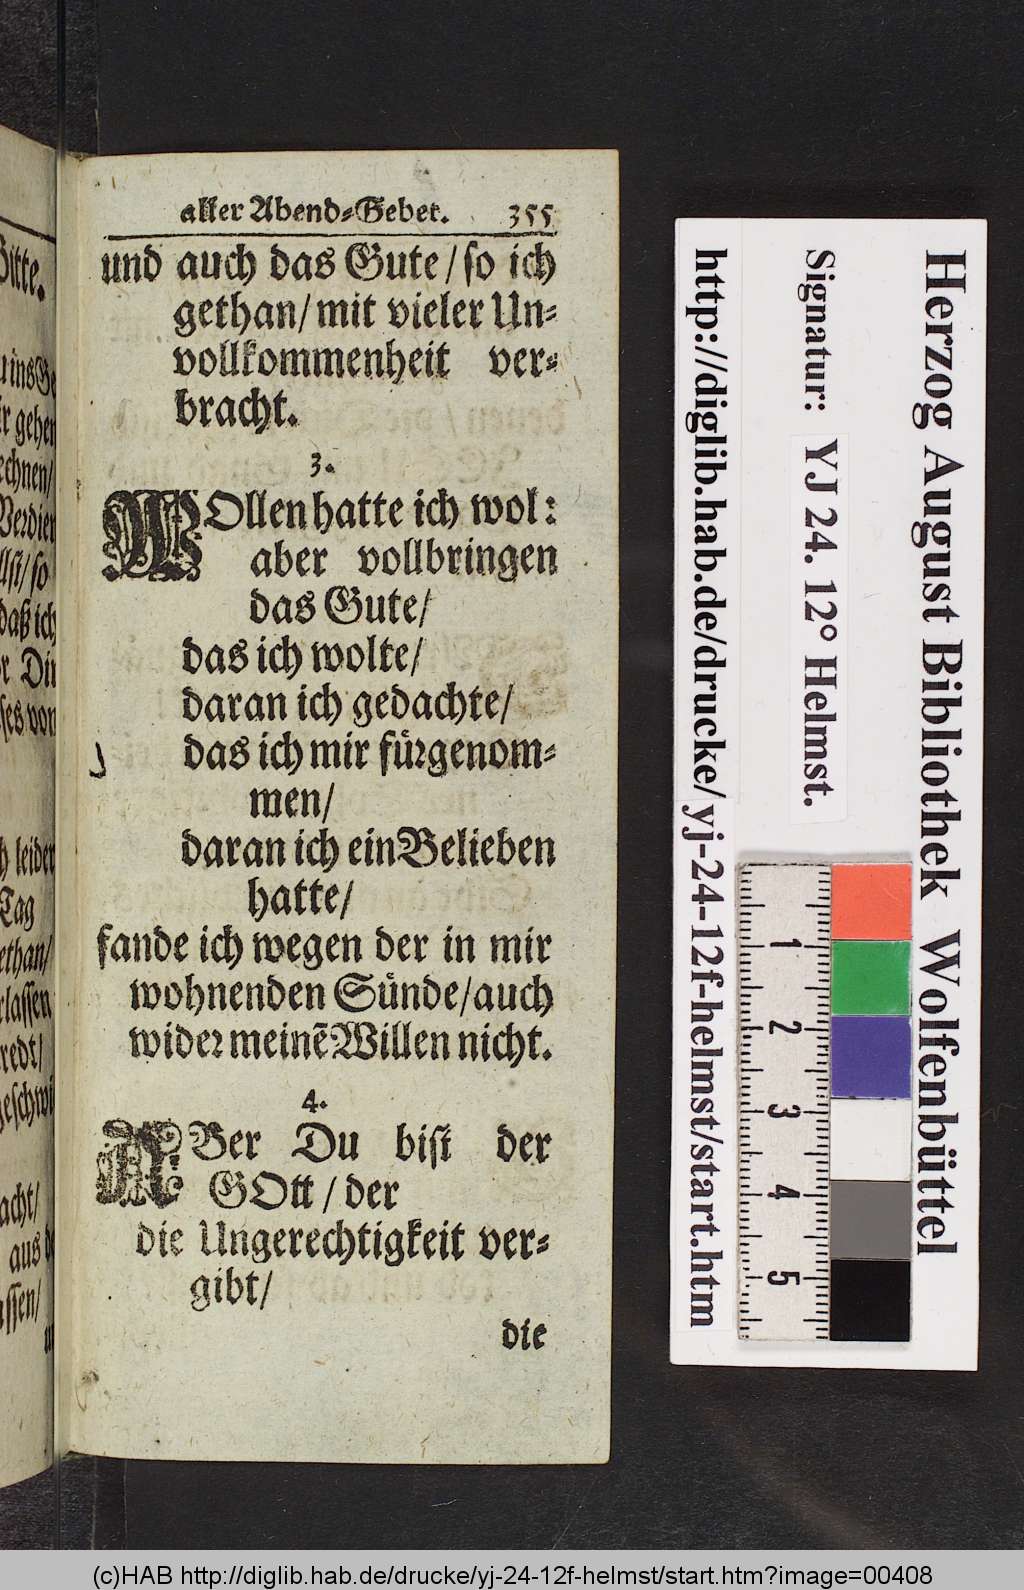 aller Abend-Gebet. 355
und auch das Gute/ so ich
gethan/ mit vieler Un-
vollkommenheit ver-
bracht.
3.
WOllen hatte ich wol:
aber vollbringen
das Gute/
das ich wolte/
daran ich gedachte/
das ich mir fürgenom-
men/
daran ich ein Belieben
hatte/
fande ich wegen der in mir
wohnenden Sünde/ auch
wider meinẽ Willen nicht.
4.
ABer Du bist der
GOtt / der
die Ungerechtigkeit ver-
gibt/
die
Bitte.
gehen
rechnen/
so
daß ich
Dir
von
leider
Tag
gethan/
acht/
aus
Herzog August Bibliothek Wolfenbüttel
Signatur: YJ 24. 12° Helmst.
http://diglib.hab.de/drucke/yj-24-12f-helmst/start.htm
1
2
3
4
5
(c)HAB http://diglib.hab.de/drucke/yj-24-12f-helmst/start.htm?image=00408